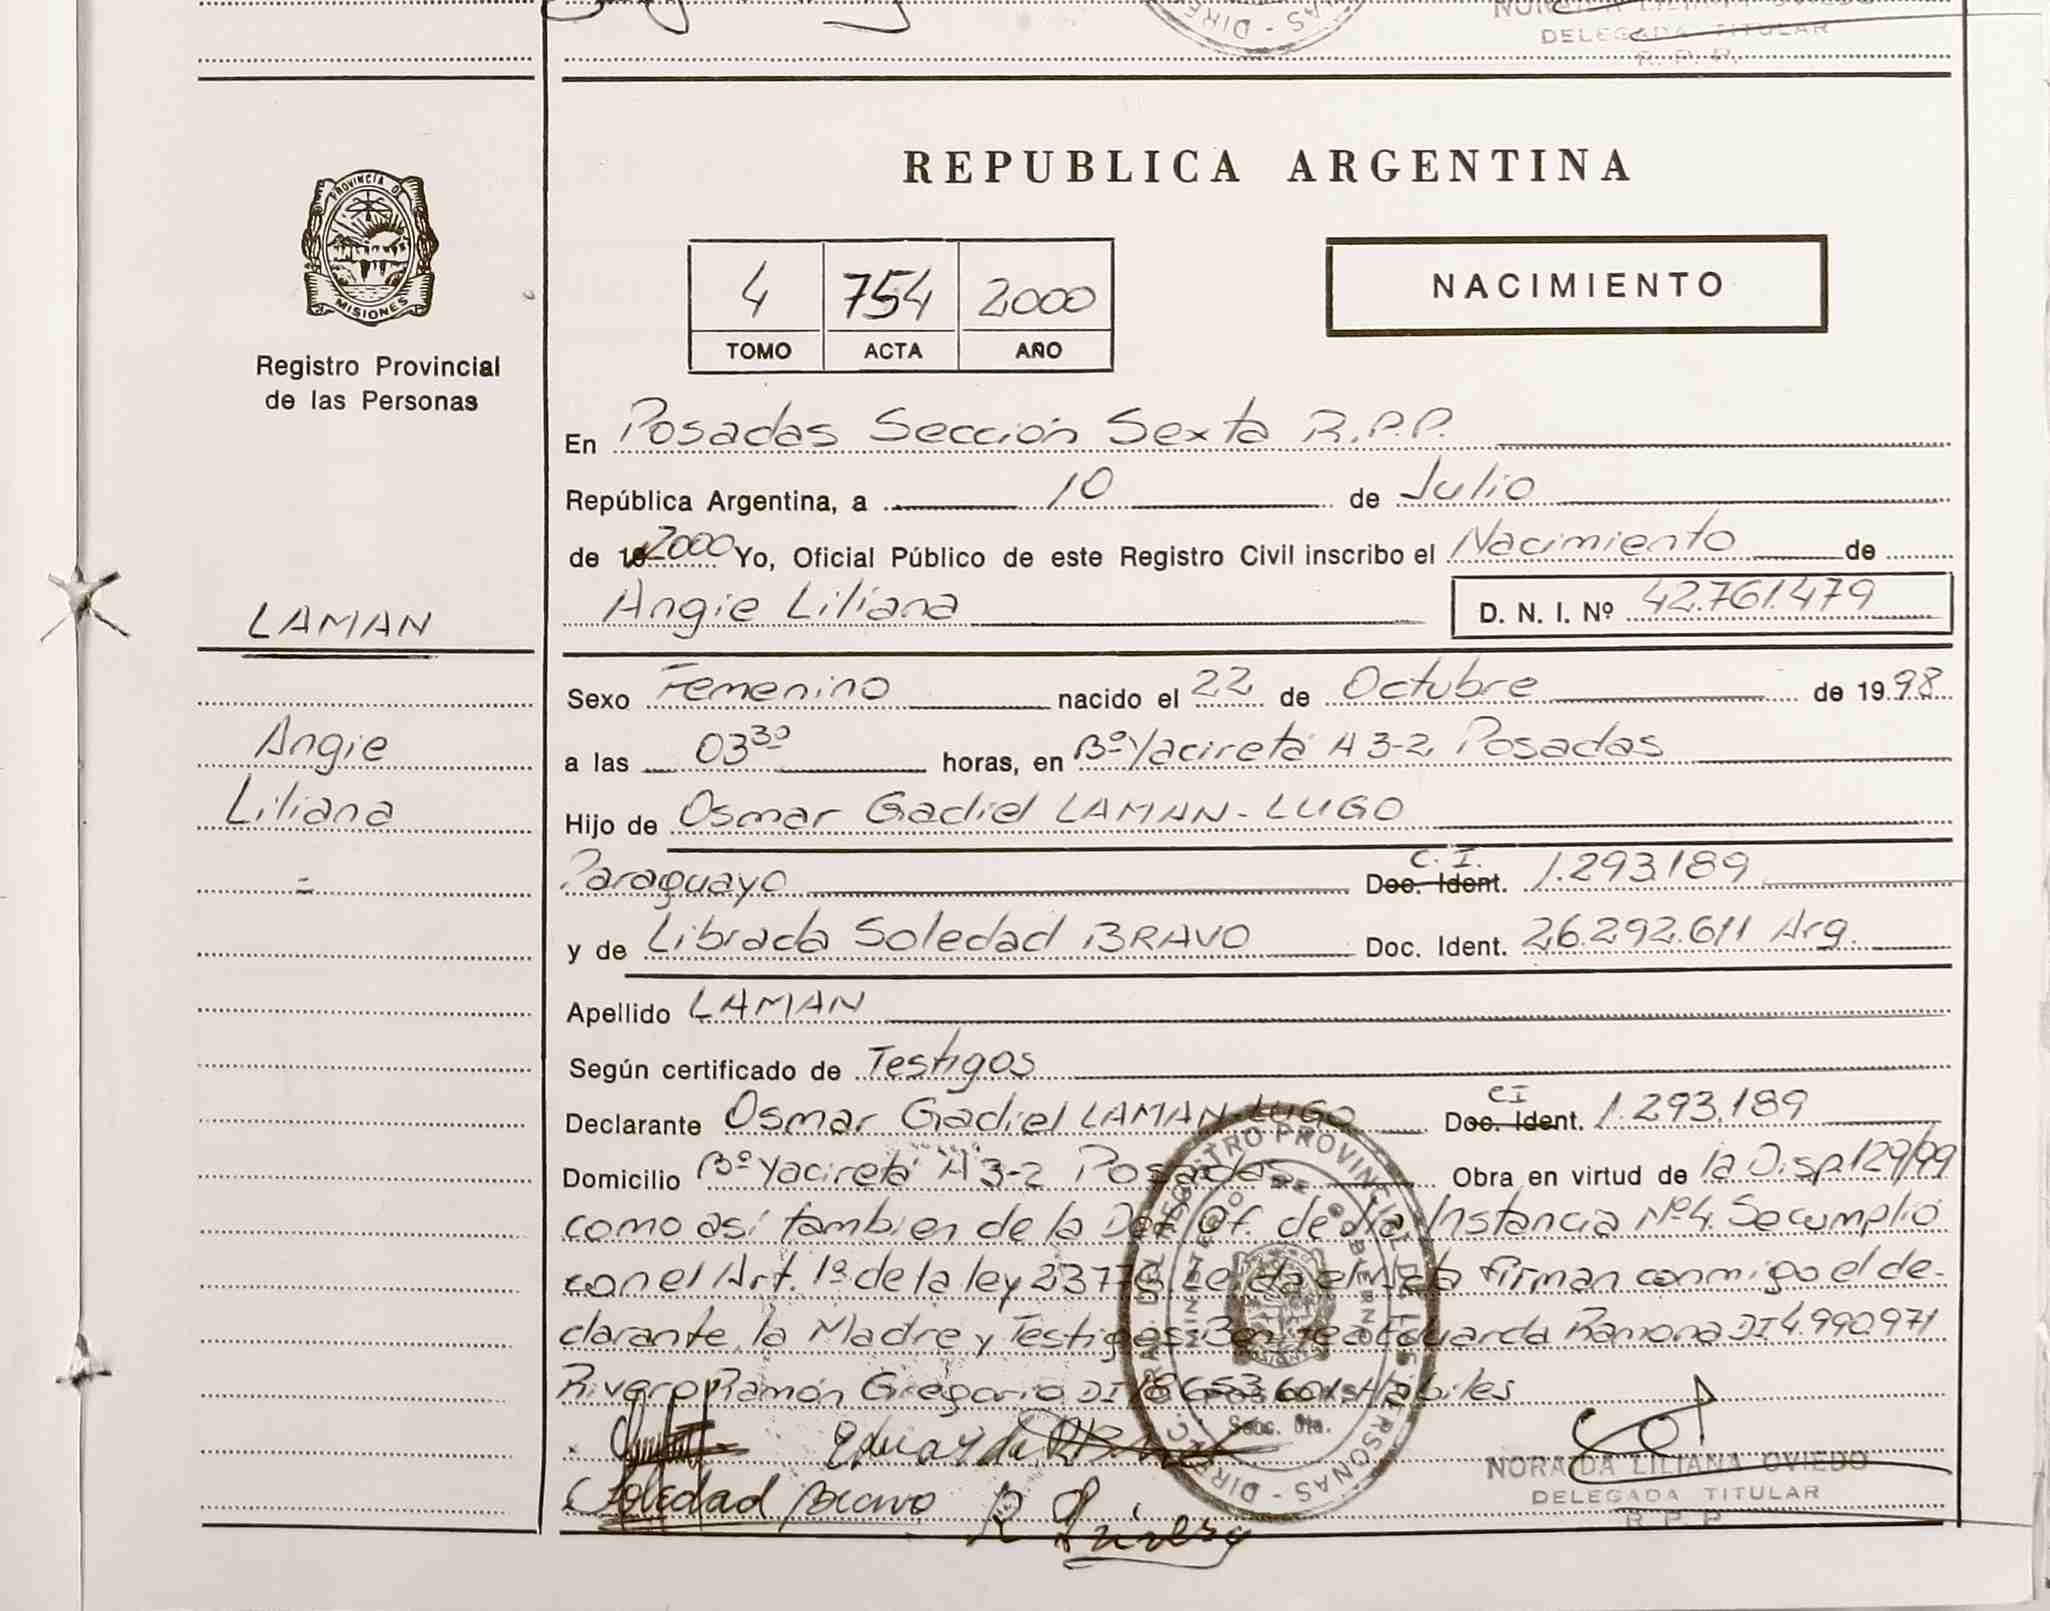 DELEGADA TITULAR
R. P. P.
REPUBLICA ARGENTINA
PROVINCIA DE
MISIONES
Registro Provincial
de las Personas
NACIMIENTO
4 754 2000
TOMO ACTA AÑO
En Posadas Sección Sexta R.P.P.
República Argentina, a 10 de Julio
de 2000 Yo, Oficial Público de este Registro Civil inscribo el Nacimiento de
Angie Liliana D. N. I. Nº 42.761.479
LAMAN
Angie
Liliana
=
Sexo Femenino nacido el 22 de Octubre de 1998
a las 03³⁰ horas, en Bº Yacireta A 3-2 Posadas
Hijo de Osmar Gadiel LAMAN-LUGO
Paraguayo C.I. Doc. Ident. 1.293.189
y de Librada Soledad BRAVO Doc. Ident. 26.292.611 Arg.
Apellido LAMAN
Según certificado de Testigos
Declarante Osmar Gadiel LAMAN LUGO CI Doc. Ident. 1.293.189
Domicilio Bº Yacireta A 3-2 Posadas Obra en virtud de la Disp. 129/99
como así tambien de la Def. Of. de Instancia Nº4. Se cumplió
con el Art. 1º de la ley 23776. Leida el Acta firman conmigo el de-
clarante, la Madre y Testigos: Eduarda Ramona DI 4.990.971
Rivero Ramón Gregorio DI Habiles
Eduarda R
Soledad Bravo R Rivero
DEL REGISTRO PROVINCIAL DE LAS PERSONAS
MINISTERIO DE GOBIERNO
Secc. 6ta.
NORAIDA LILIANA OVIEDO
DELEGADA TITULAR
R. P. P.